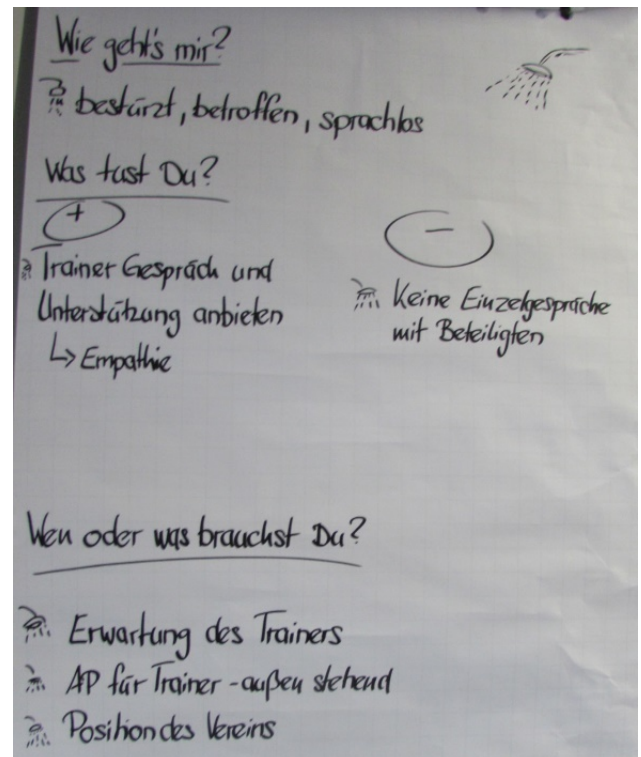 Wie geht's mir?
bestürzt, betroffen, sprachlos
Was tust Du?
+
Trainer Gespräch und
Unterstützung anbieten
↳ Empathie
−
Keine Einzelgespräche
mit Beteiligten
Wen oder was brauchst Du?
Erwartung des Trainers
AP für Trainer - außen stehend
Position des Vereins